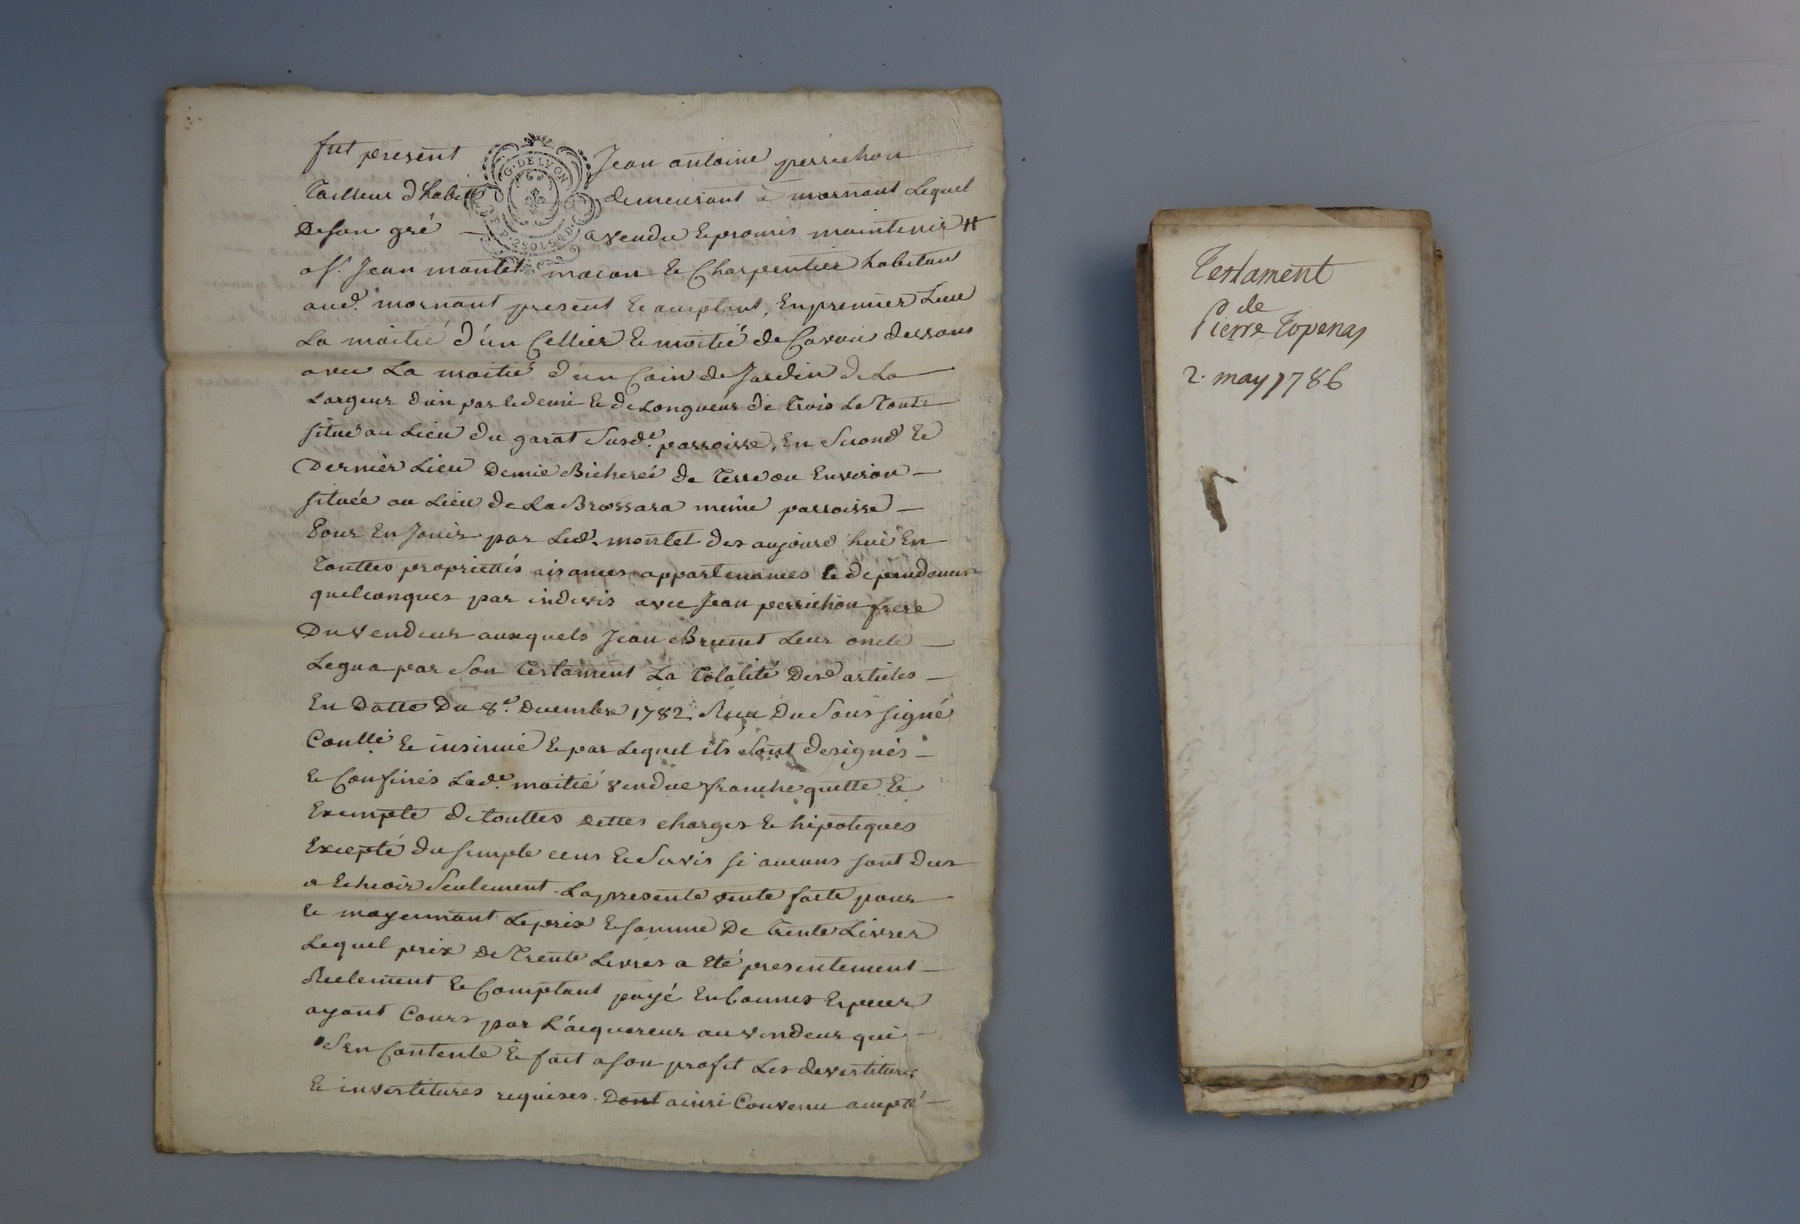 fut present Jean antoine perrichon
Tailleur d'habit demeurant à mornant Lequel
De son gré a vendu & promis maintenir
a s.r Jean montet macon & Charpentier habitant
aud.t mornant present & acceptant, En premier Lieu
La moitié d'un Cellier & moitié de Cavau dessous
avec La moitié d'un Coin de Jardin de La
Largeur d'un pas & demi & de Longueur de trois Le tout
situé au Lieu du garat Susd.e parroisse, En Second &
Dernier Lieu Demie Bicherée de Terre ou Environ
située au Lieu de La Brossara même parroisse
Pour En Jouir par Led.t montet des aujourd'hui En
Touttes propriettés aisances appartenances & dependances
quelconques par indivis avec Jean perrichon frere
Du vendeur auxquels Jean Brunet Leur oncle
Legua par Son Testament La Totalité Desd. articles
En Datte Du 8.e Decembre 1782. Recu Du Soussigné
Contlé & insinué & par Lequel ils Sont designés
& Confinés Lad.e moitié vendue franche quitte &
Exempte de touttes dettes charges & hipoteques
Excepté du simple cens & Servis si aucuns sont dus
a Echeoir Seulement. La presente vente faite pour
& moyennant Le prix & somme De trente Livres
Lequel prix De Trente Livres a été presentement
Reelement & Comptant payé En bonnes Especes
ayant Cours par L'acquereur au vendeur qui
S'en Contente & fait a son profit Les devestitures
& investitures requises. Dont ainsi Convenu accepté
Testament
de
Pierre Topenas
2. may 1786
G. DE LYON